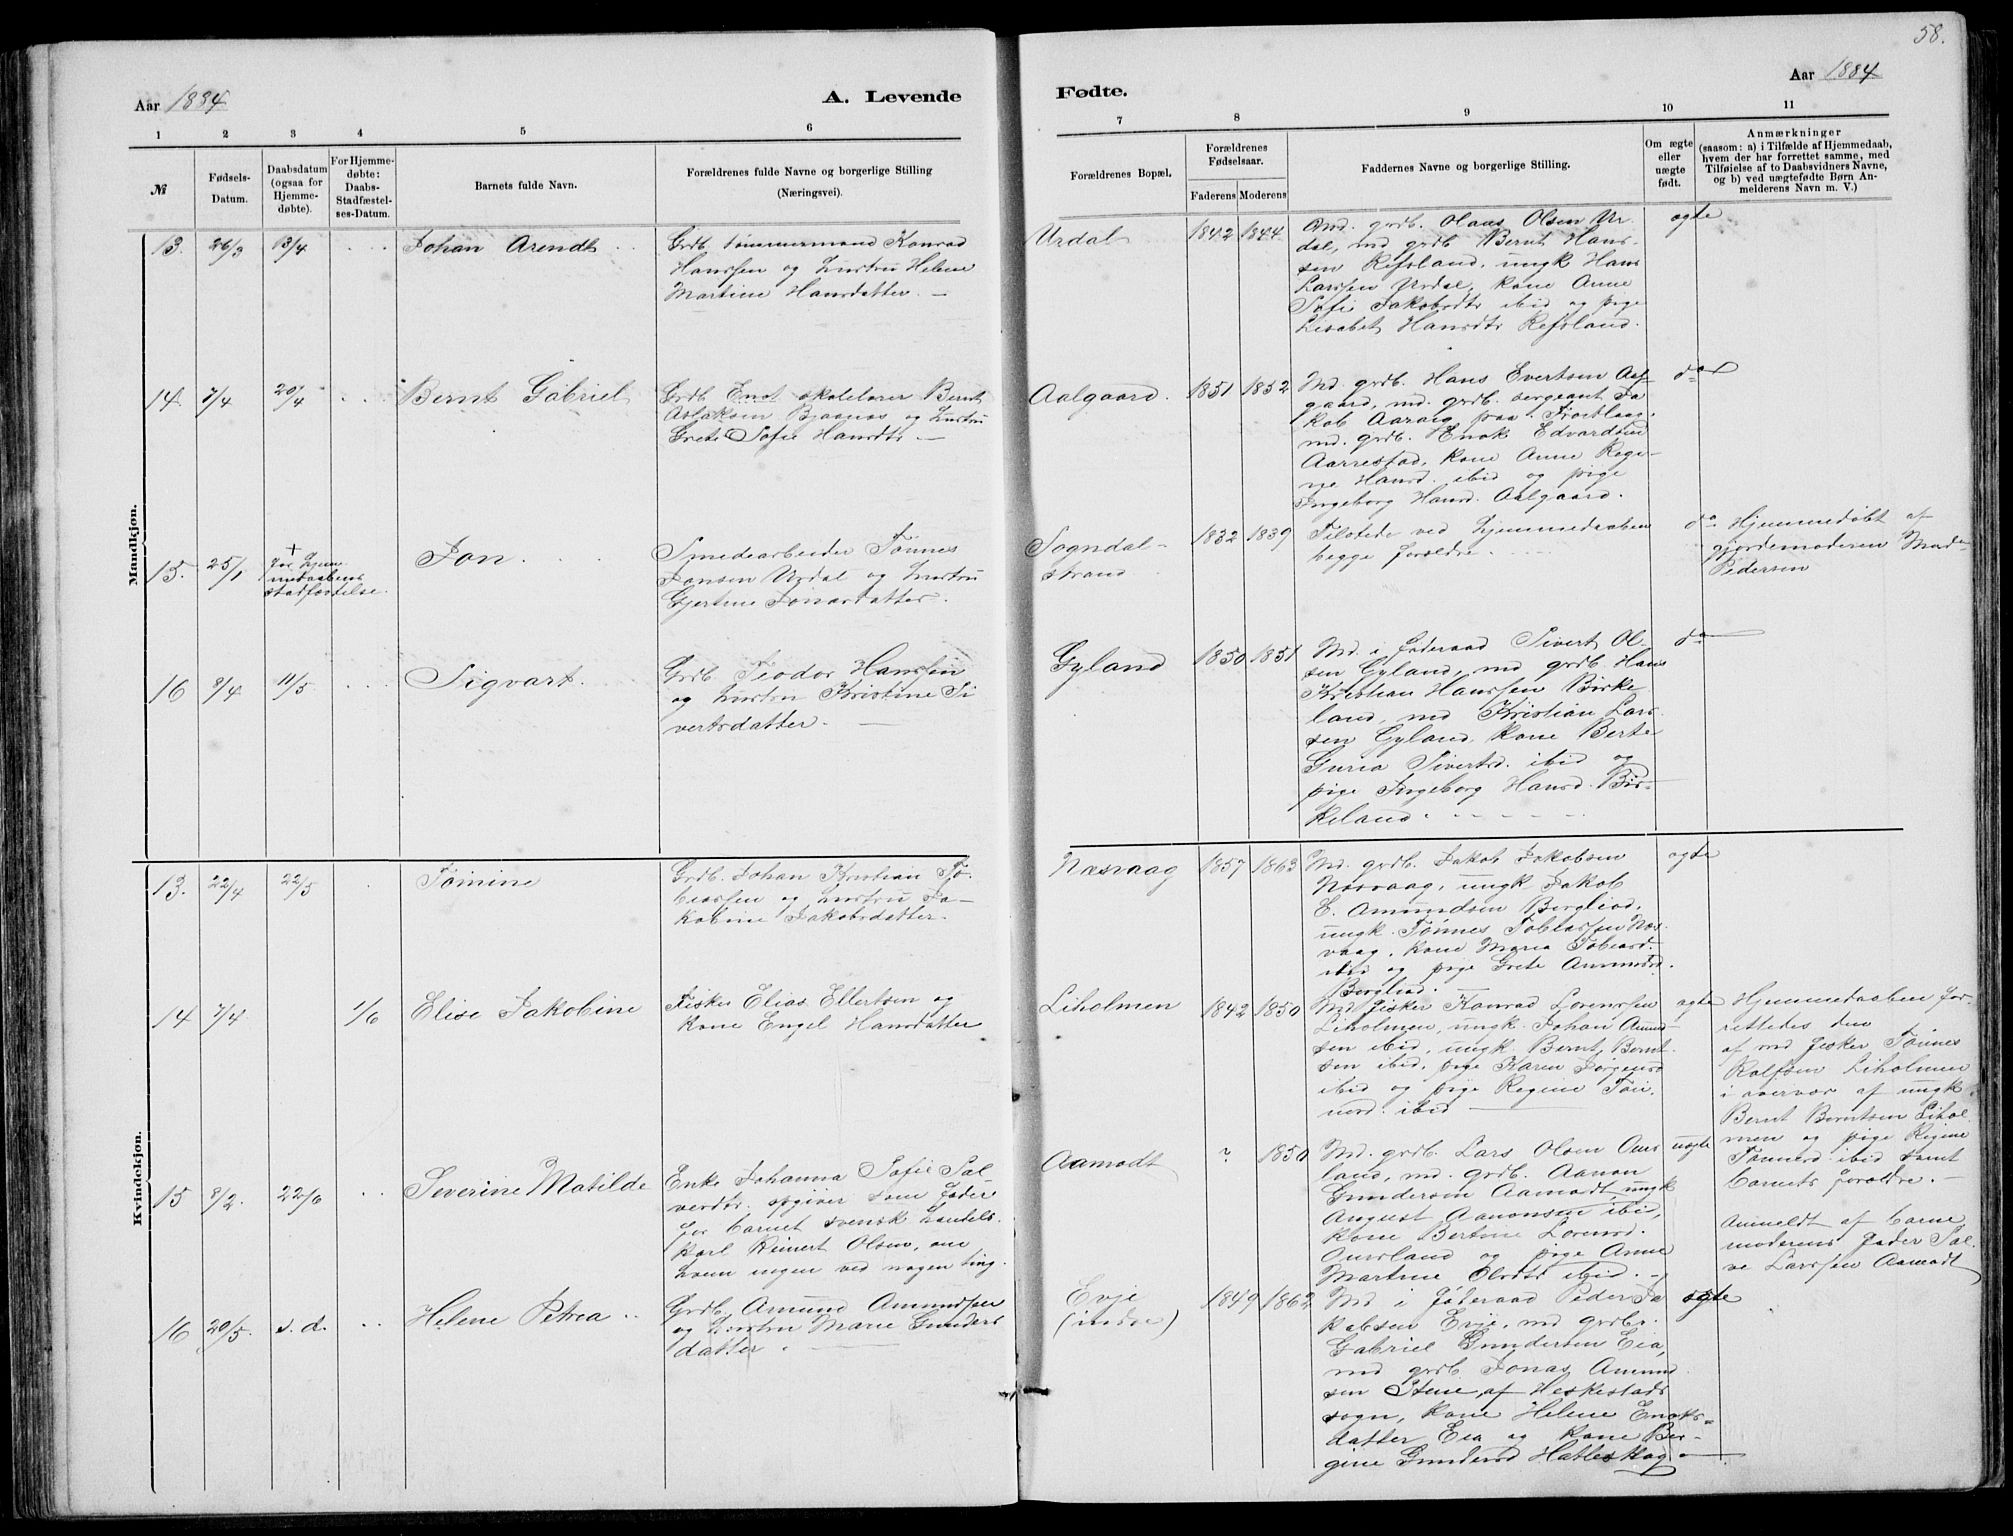 58.
Aar 1884
A. Levende
Fødte.
Aar 1884
1 2 3 4 5 6
7 8 9 10 11
№
Fødsels-
Datum.
Daabsdatum
(ogsaa for
Hjemme-
døbte).
For Hjemme-
døbte:
Daabs-
Stadfæstel-
ses-Datum.
Barnets fulde Navn.
Forældrenes fulde Navne og borgerlige Stilling
(Næringsvei).
Forældrenes Bopæl.
Forældrenes
Fødselsaar.
Faderens Moderens
Faddernes Navne og borgerlige Stilling.
Om ægte
eller
uægte
født.
Anmærkninger
(saasom: a) i Tilfælde af Hjemmedaab,
hvem der har forrettet samme, med
Tilføielse af to Daabsvidners Navne,
og b) ved uægtefødte Børn An-
melderens Navn m. V.)
Mandkjøn.
13. 26/3 13/4 Johan Arendt
Grdb. tømmermand Konrad
Hanssen og hustru Helene
Martine Hansdatter. —
Urdal 1842 1844
Md. grdb. Olaus Olsen Ur-
dal, md grdb Bernt Hans-
sen Refsland, ungk Hans
Larssen Urdal, kone Anne
Sofie Jakobsdtr ibid og pige
Lisabet Hansdtr Refsland.
ægte
14. 7/4 20/4 Bernt Gabriel
Grdb. Enst skolelærer Bernt
Aslaksen Bjaanes og hustru
Grete Sofie Hansdtr. —
Aalgaard. 1851 1852
Md. grdb. Hans Evertsen Aal-
gaard, md. grdb. sergeant Ja
kob Aarrig paa Træthaug,
md. grdb. Enok Edvardsen
Aarrestad, kone Anne Rege-
ne Hansd. ibid og pige
Ingeborg Hansd. Aalgaard.
do
15. 25/1 + før hjem-
medaabens
stadfæstelse.
Jon.
Smedearbeider Tønnes
Jonsen Urdal og hustru
Gjertine Jonasdatter.
Sogndal-
strand 1832 1839
Tilstede ved hjemmedaaben
begge forældre.
do Hjemmedøbt af
gjordemoderen Mad.
Pedersen
16 8/4 11/5 Sigvart.
Grdb. Teodor Hanssen
og hustru Kristine Si
vertsdatter. —
Gyland 1850 1851
Md. i føderaad Sivert Ol-
sen Gyland, md grdb Hans
Kristian Hanssen Birke
land, md Kristian Lars-
sen Gyland, kone Berte
Guria Sivertsd. ibid og
pige Ingeborg Hansd. Bir-
keland.
do
Kvindekjøn.
13. 22/4 22/5 Tomine
Grdb. Johan Kristian To
biassen og hustru Ja-
kobine Jakobsdatter.
Næsvaag 1857 1863
Md. grdb. Jakob Jakobsen
Næsvaag, ungk Jakob
E. Amundsen Berglind,
ungk. Tønnes Tobiassen Næs-
vaag, kone Maria Tobiasd.
ibid og pige Grete Amundsd.
Berglind.
ægte
14 7/4 1/6 Elise Jakobine
Fisker Elias Ellertsen og
kone Engel Hansdatter
Liholmen 1842 1850
Md fisker Konrad Lorenssen
Liholmen, ungk. Johan Amund
sen ibid, ungk. Bernt Bernt
sen ibid, pige Karen Jørgensd
ibid og pige Regine Tøn
nesd. ibid —
ægte
Hjemmedaaben for-
rettedes den
af md fisker Tønnes
Rolfsen Liholmen
i overvær af ungk.
Bernt Berntsen Lihol
men og pige Regine
Tønnesd. ibid samt
barnets forældre. —
15 8/2. 22/6 Severine Matilde
Enke Johanna Sofie Sal
vesdtr. opgiver som fader
for barnet svensk handels.
karl Reinert Olsen, om
hvem ingen ved nogen ting.
Aamodt ? 1850
Md. grdb. Lars Olsen Ours
land, md. grdb. Aanon
Gundersen Aamodt, ungk
August Aanonsen ibid,
kone Bertine Lorensd.
Oursland og pige Anne
Martine Olsdtr ibid. —
uægte
Anmeldt af barne
moderens fader Sal
ve Larssen Aamodt
16 20/5. s. d. Helene Petrea
Grdb. Amund Amundsen
og hustru Marie Gunders
datter. —
Evje
(indre) 1849 1862
Md i føderaad Peder Ja
kobsen Evje, md grdbr.
Gabriel Gundersen Eia,
md grdb Jonas Amund
sen Stene, af Heskestads
sogn, kone Helene Enoks-
datter Eia og kone Ber-
gine Gundersd Hatleskog —
ægte